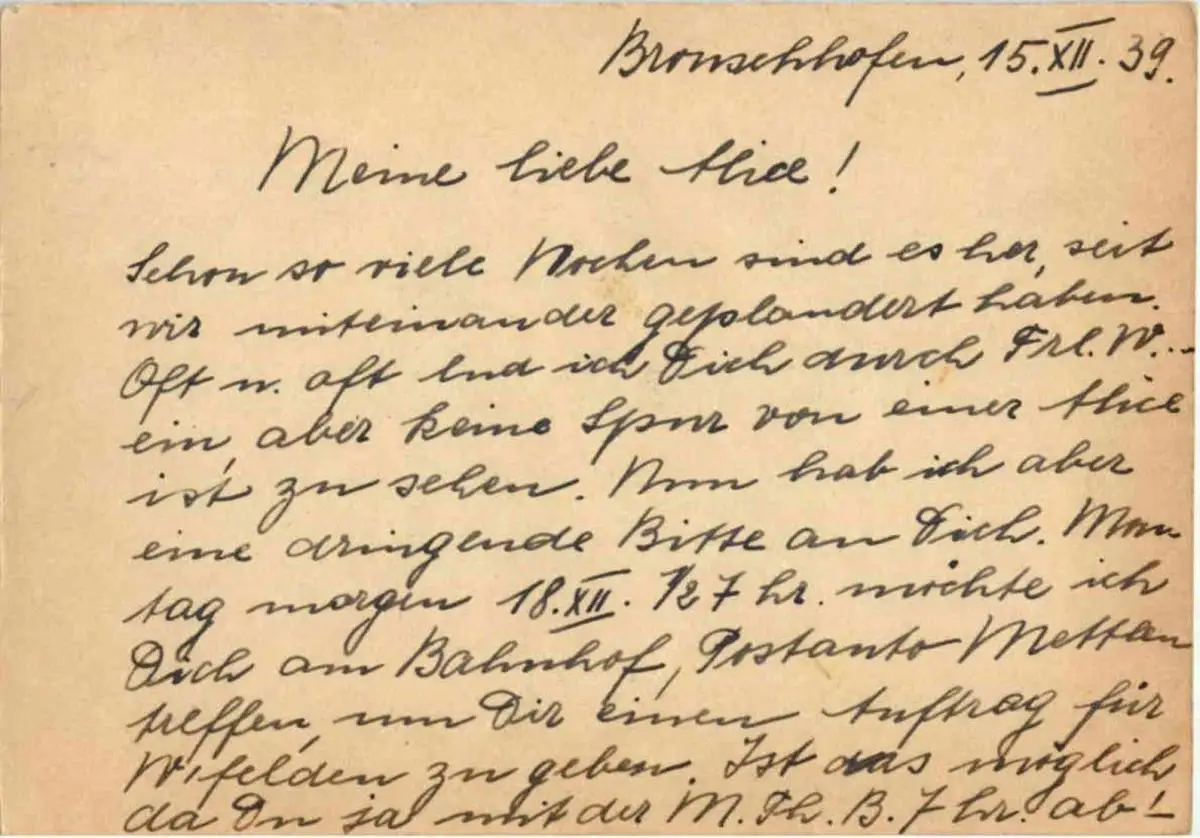 Bronschhofen, 15. XII. 39.
Meine liebe Alice!
Schon so viele Wochen sind es her, seit
wir miteinander geplaudert haben.
Oft u. oft lud ich Dich durch Frl. W...
ein, aber keine Spur von einer Alice
ist zu sehen. Nun hab ich aber
eine dringende Bitte an Dich. Mon-
tag morgen 18. XII. 1/2 7 hr. möchte ich
Dich am Bahnhof, Postauto Mettlen
treffen, um Dir einen Auftrag für
W'felden zu geben. Ist das möglich
da Du ja mit der M. Th. B. 7 hr. ab-